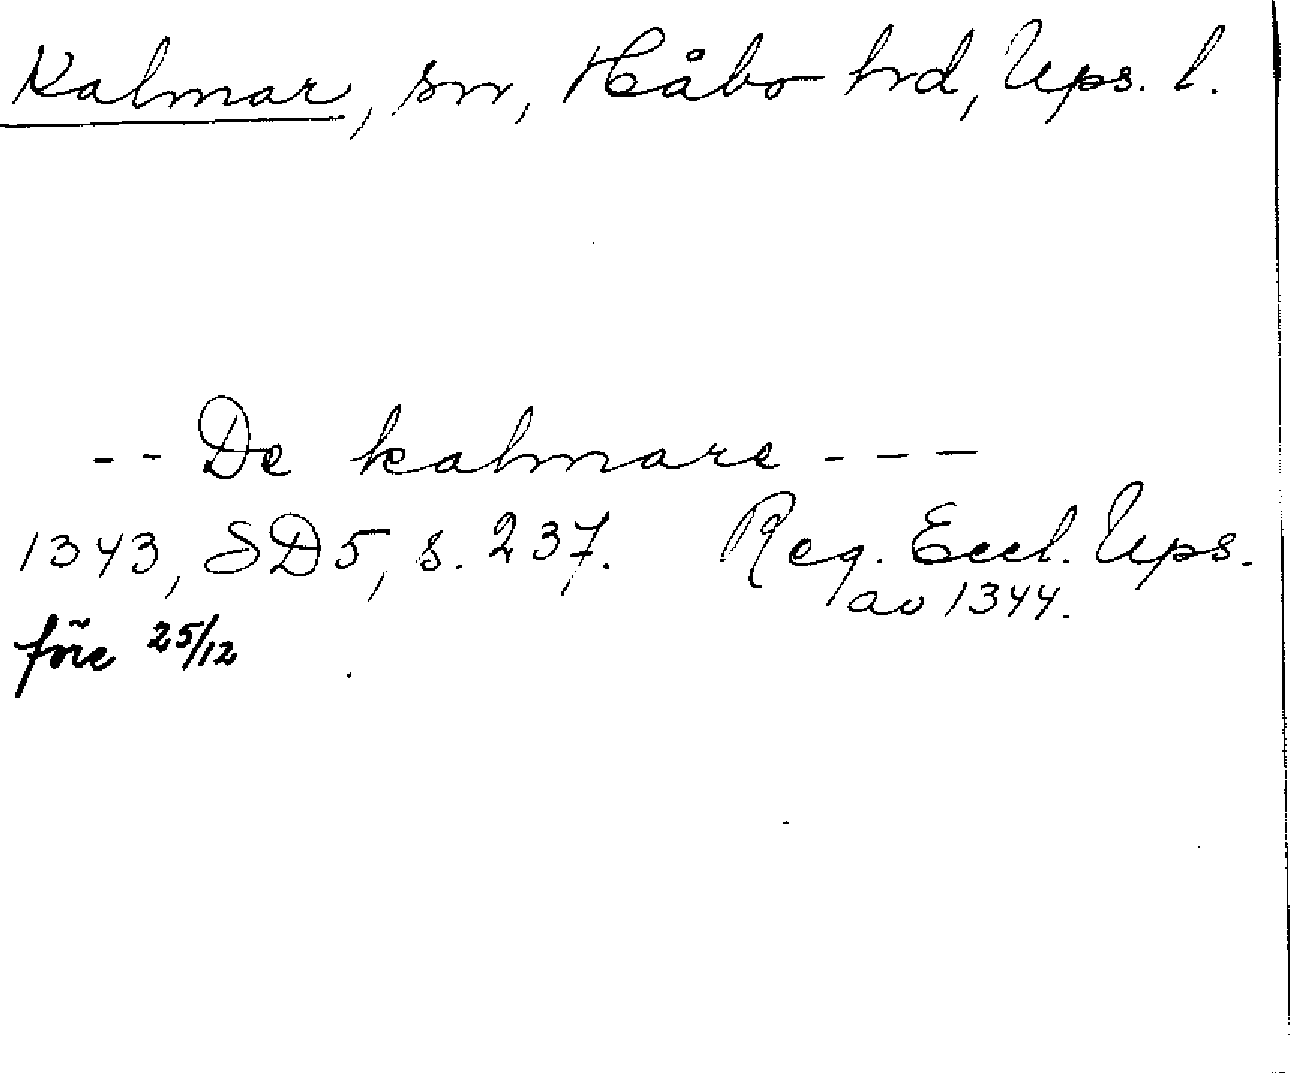 Kalmar, sn, Håbo hd, Ups. l.
-- De kalmare ---
1343, SD5, s. 237. Reg. Eccl. Ups.
av 1344.
före 25/12